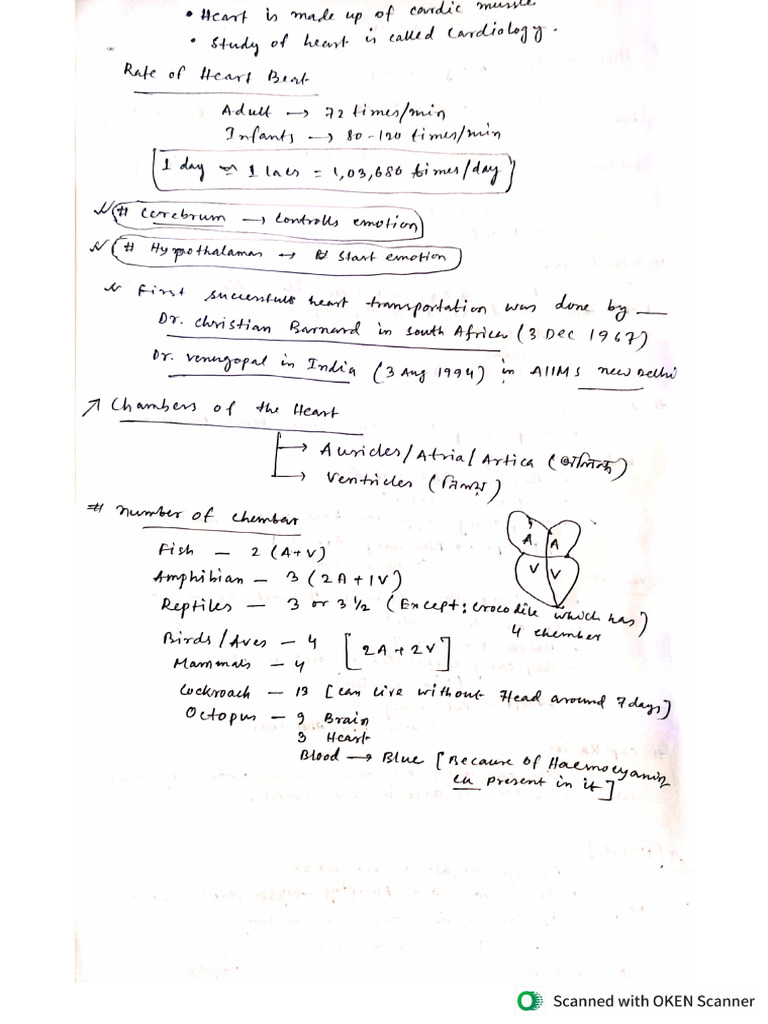 • Heart is made up of cardic muscle
• Study of heart is called Cardiology.
Rate of Heart Beat
Adult → 72 times/min
Infants → 80-120 times/min
[1 day ≃ 1 lacs = 1,03,680 times/day]
# Cerebrum → Controlls emotion
# Hypothalamas → Start emotion
First successfull heart transportation was done by —
Dr. Christian Barnard in South Africa (3 Dec 1967)
Dr. Venugopal in India (3 Aug 1994) in AIIMS New Delhi
Chambers of the Heart
→ Auricles/Atria/Artica (অলিন্দ)
→ Ventricles (নিলয়)
# Number of chember
Fish — 2 (A+V)
A A
V V
Amphibian — 3 (2A+1V)
Reptiles — 3 or 3 1/2 (Except: Crocodile which has)
4 chember
Birds/Aves — 4 [2A+2V]
Mammals — 4
Cockroach — 13 [can live without Head around 7 days]
Octopus — 9 Brain
3 Heart
Blood → Blue [Because of Haemocyanin
cu present in it]
Scanned with OKEN Scanner